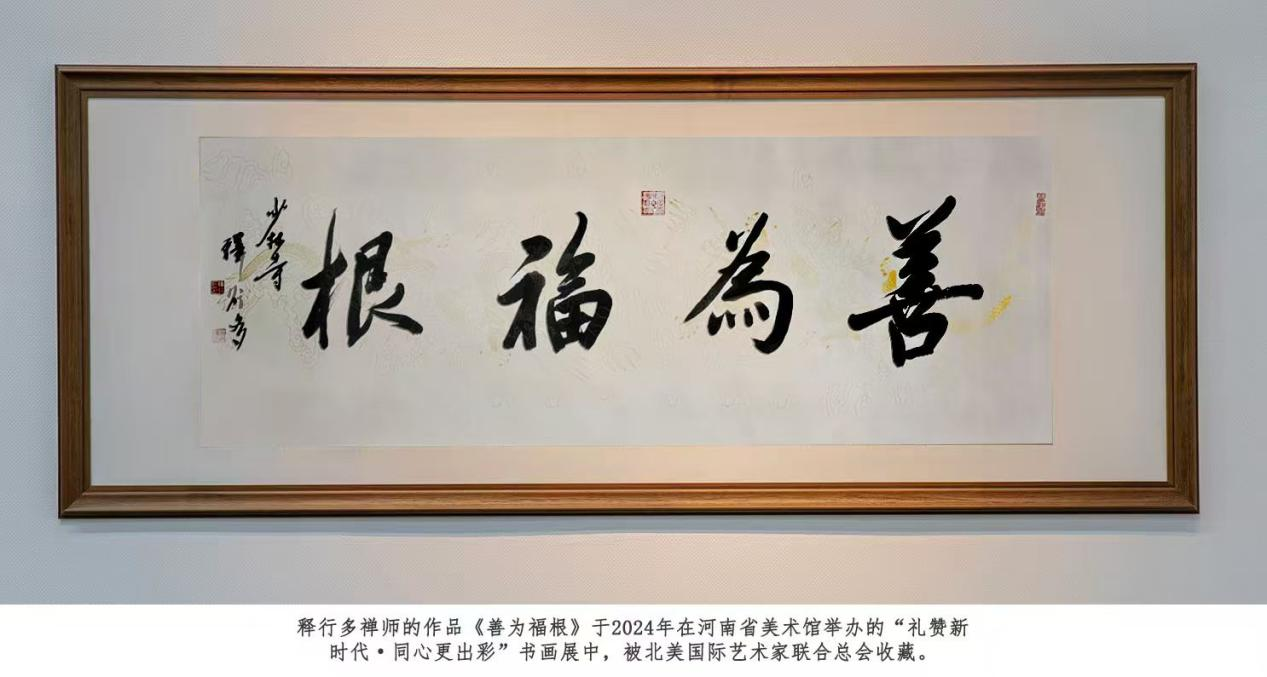 善為福根
少林寺
釋行多
释行多禅师的作品《善为福根》于2024年在河南省美术馆举办的“礼赞新
时代·同心更出彩”书画展中，被北美国际艺术家联合总会收藏。